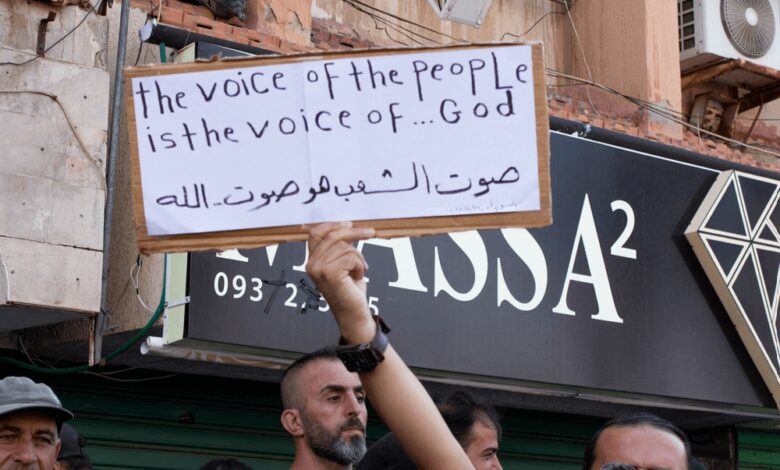 the voice of the people
is the voice of ... God
صوت الشعب هو صوت .. الله
MASSA²
093